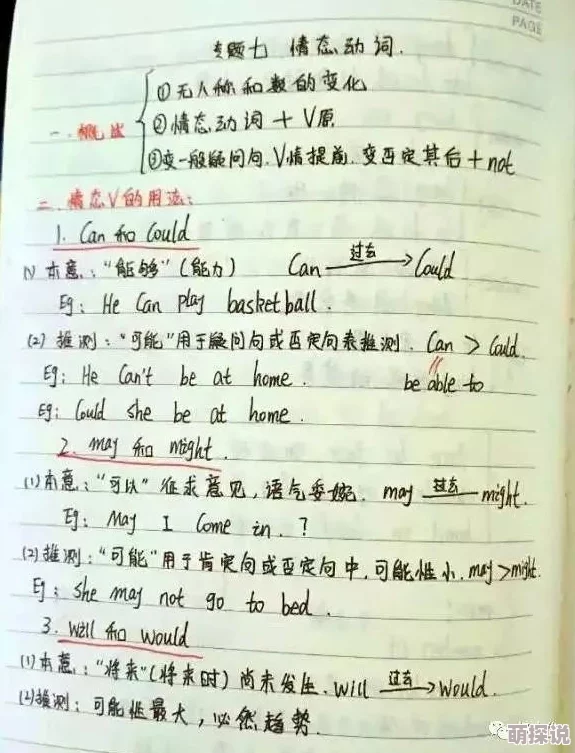 DATE
PAGE
专题七 情态动词.
一. 概述
①无人称和数的变化
②情态动词 + V原
③变一般疑问句. V情提前. 变否定其后 + not
二. 情态V的用法:
1. Can 和 Could
(1) 本意: "能够" (能力) Can 过去 Could
Eg: He Can play basketball.
(2) 推测: "可能" 用于疑问句或否定句表推测. Can > Could.
Eg: He Can't be at home. be able to
Eg: Could she be at home.
2. may 和 might.
(1) 本意: "可以" 征求意见, 语气委婉. may 过去 might.
Eg: May I Come in. ?
(2) 推测: "可能" 用于肯定句或否定句中, 可能性小. may > might.
Eg: She may not go to bed.
3. Will 和 would
(1) 本意: "将来" (将来时) 尚未发生. will 过去 would.
(2) 推测: 可能性最大, 必然趋势.
萌探说